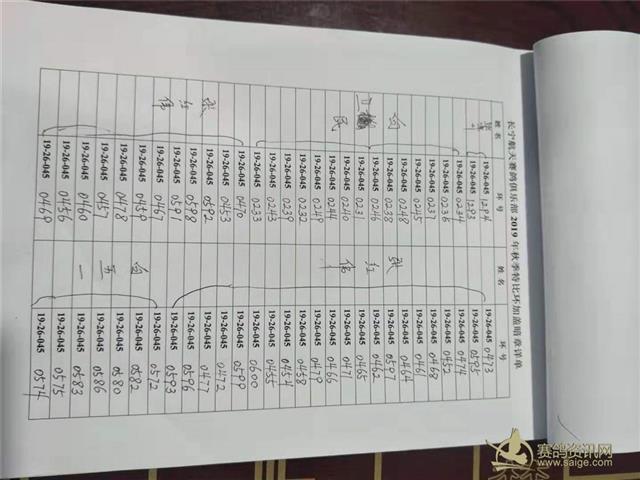 长宁航天赛鸽俱乐部 2019 年秋季特比环加盖暗章详单
姓名 环号 姓名 环号
19-26-045 1294 19-26-045 0473
19-26-045 1293 19-26-045 0595
19-26-045 0234 19-26-045 0474
19-26-045 0236 19-26-045 0452
19-26-045 0237 19-26-045 0468
19-26-045 0245 19-26-045 0461
19-26-045 0248 19-26-045 0464
向 19-26-045 0238 张 19-26-045 0597
19-26-045 0246 红 19-26-045 0462
卫 19-26-045 0231 19-26-045 0465
民 19-26-045 0240 伟 19-26-045 0471
19-26-045 0244 19-26-045 0466
19-26-045 0249 19-26-045 0479
19-26-045 0232 19-26-045 0458
19-26-045 0239 19-26-045 0454
19-26-045 0243 19-26-045 0455
19-26-045 0233 19-26-045 0600
19-26-045 0470 19-26-045 0599
19-26-045 0453 19-26-045 0472
张 19-26-045 0592 19-26-045 0477
红 19-26-045 0598 19-26-045 0596
伟 19-26-045 0591 19-26-045 0593
19-26-045 0467 19-26-045 0572
19-26-045 0459 向 19-26-045 0582
19-26-045 0478 19-26-045 0580
19-26-045 0457 19-26-045 0586
19-26-045 0460 一 19-26-045 0583
19-26-045 0456 19-26-045 0575
19-26-045 0469 19-26-045 0574
赛鸽资讯网
www.saige.com